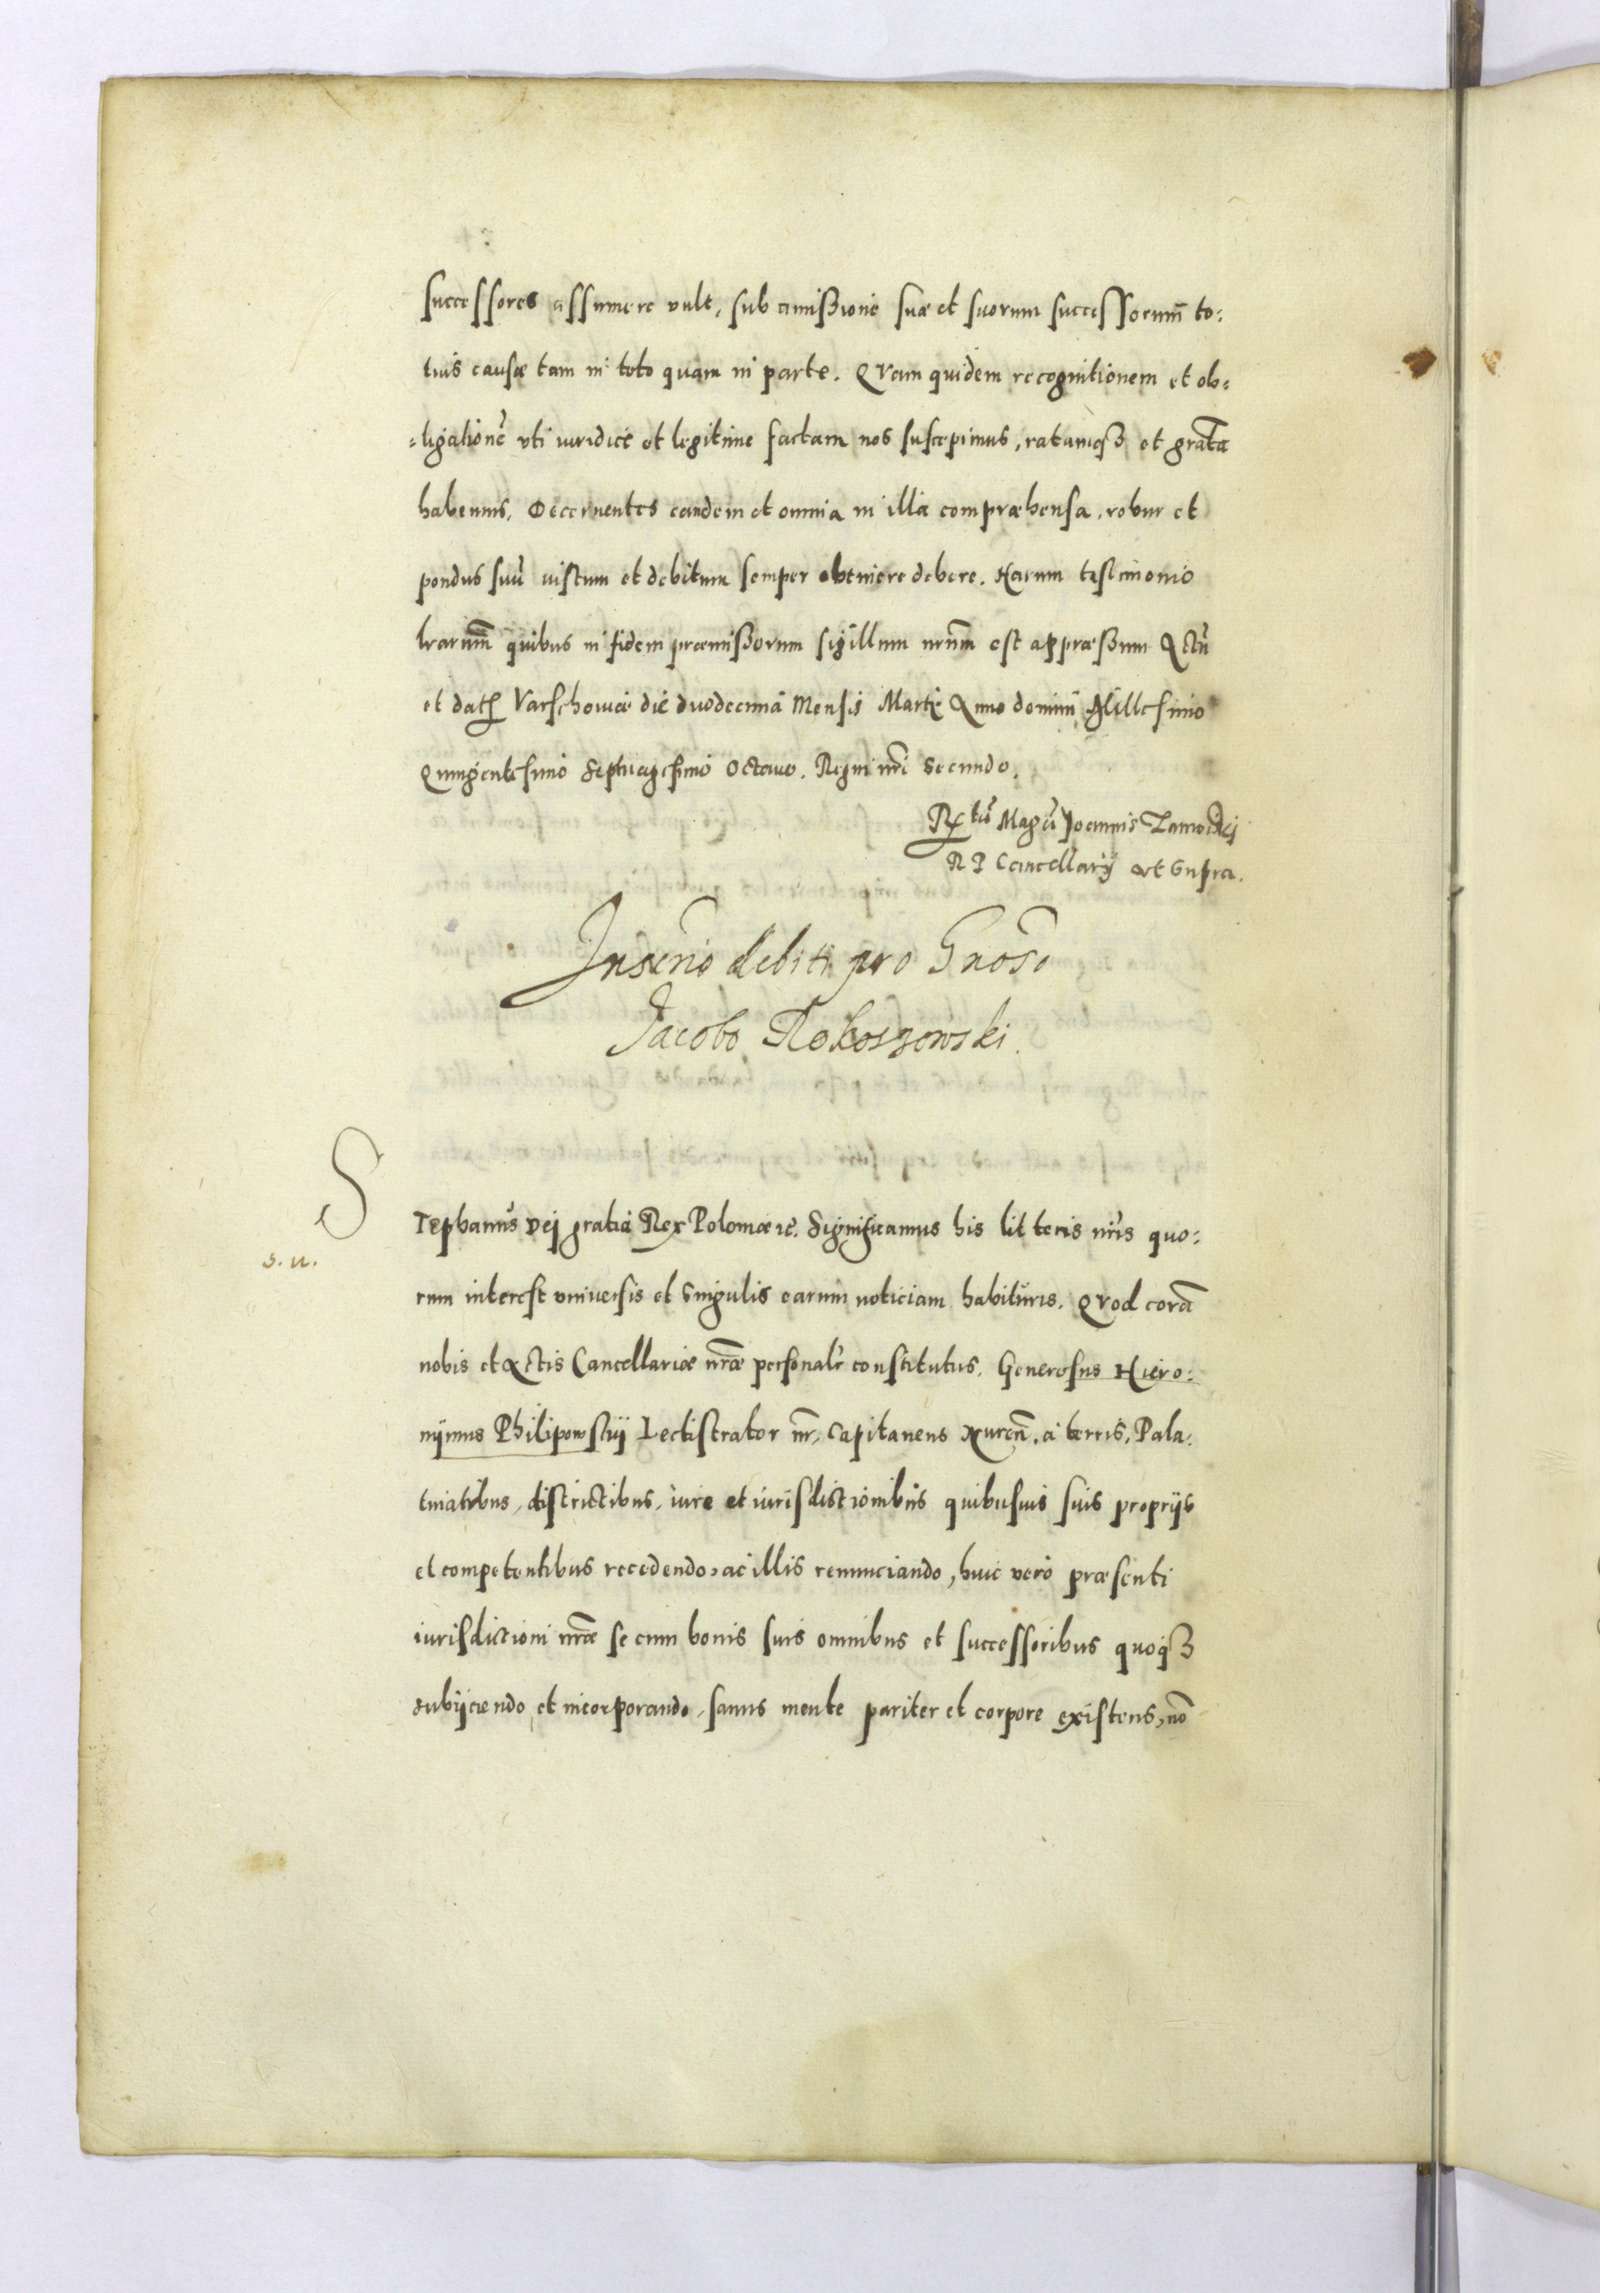 successores assumere vult, sub amissione suæ et suorum successorum̃ to:
tius causæ tam in toto quam in parte. Quam quidem recognitionem et ob=
=ligationẽ uti iuridicè et legitime factam nos suscepimus, ratamqʒ et gratã
habemus. Decernentes eandem et omnia in illa compræhensa, robur et
pondus suũ iustum et debitum semper obtinere debere. Harum testimonio
lrarum̃ quibus in fidem præmissorum sigillum nrũm est appræssum Actũ
et datʒ Varschouiæ die duodecima Mensis Martij Anno domini Millesimo
Quingentesimo Septuagesimo Octauo. Regni nr̃i Secundo.
Rtũ Magcũ Joannis Zamoiski
R P Cancellarij ut supra.
Inscrio debiti pro Gnoso
Jacobo Rokoszowski
S
Tephanus Dej gratia Rex Poloniæ ꝛc. Significamus his litteris nr̃is quo:
s. n.
rum interest uniuersis et singulis earum noticiam habituris. Quod corã
nobis et Actis Cancellariæ nr̃æ personalr̃ constitutus. Generosus Hiero:
nÿmus Philipowskij Lectistrator nr̃, Capitaneus Xurcen̄. à terris, Pala:
tinatibus, districtibus, iure et iurisdictionibus quibusuis suis proprijs
et competentibus recedendo, ac illis renunciando, huic verò præsenti
iurisdictioni nr̃æ se cum bonis suis omnibus et successoribus quoqʒ
subijciendo et incorporando, sanus mente pariter et corpore existens, nõ